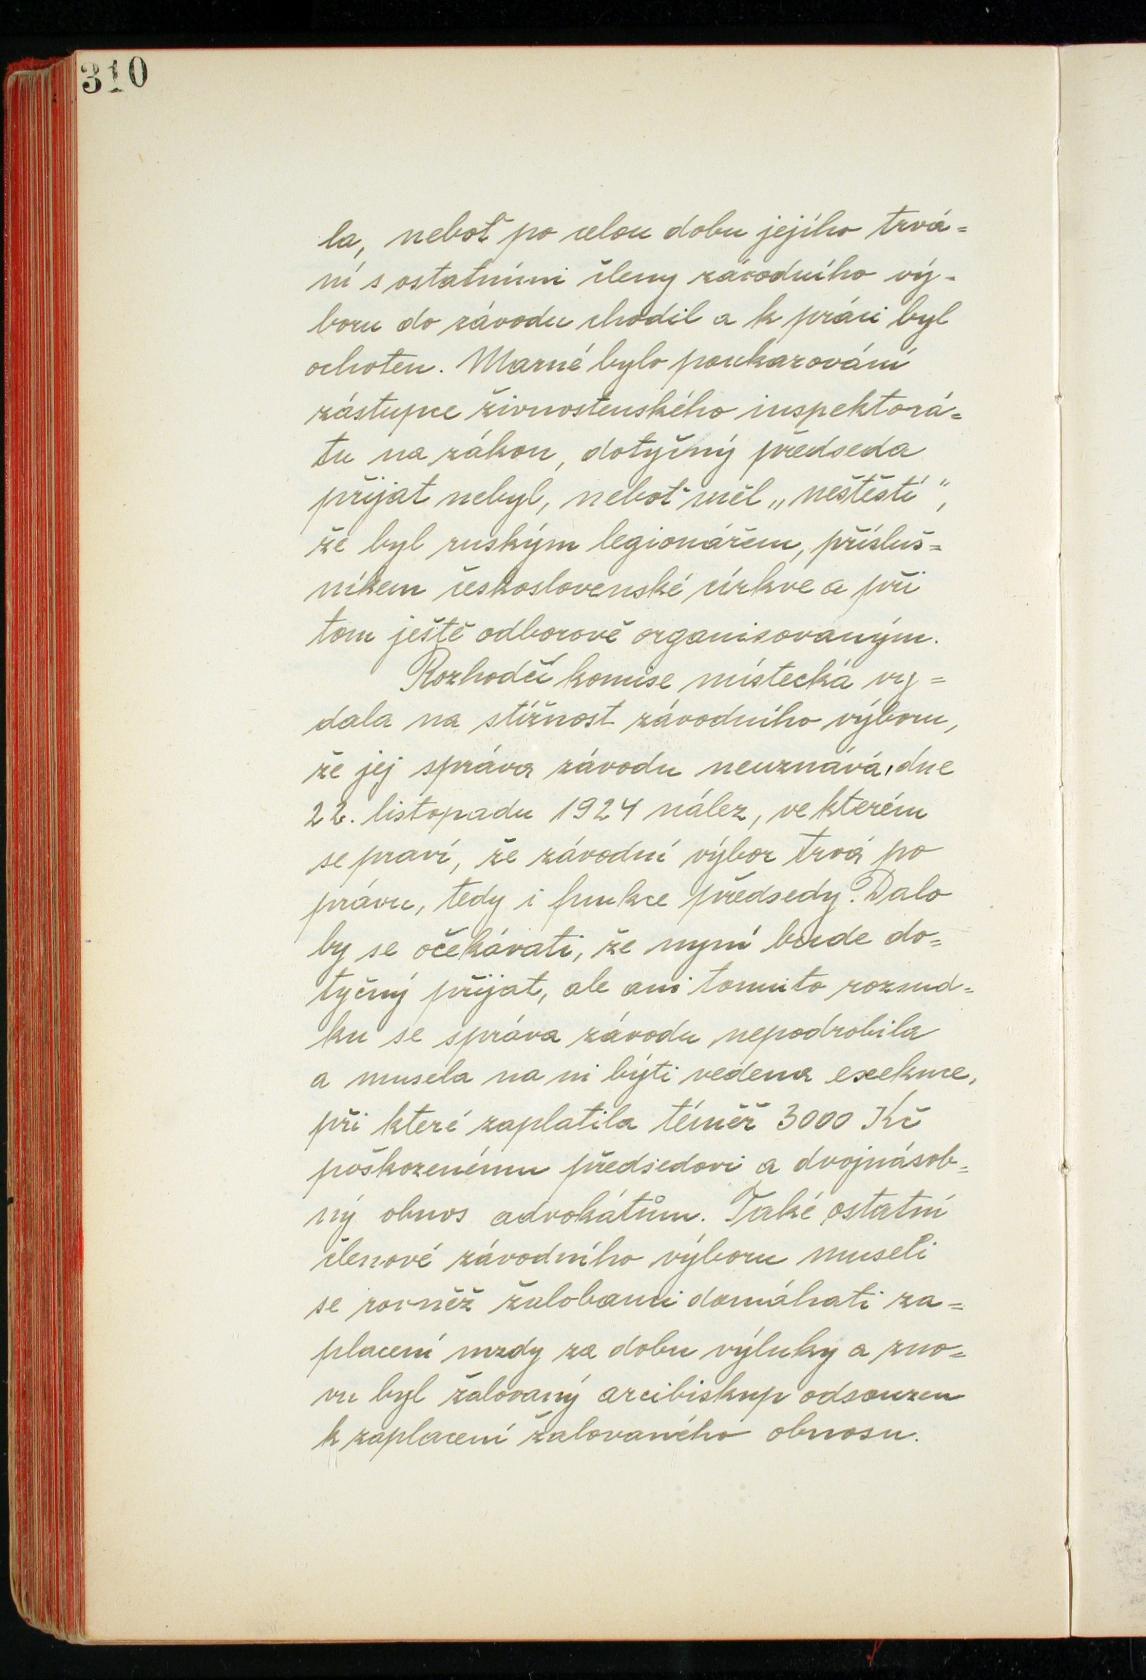 310
la, neboť po celou dobu jejího trvá=
ní s ostatními členy závodního vý=
boru do závodu chodil a k práci byl
ochoten. Marné bylo poukazování
zástupce živnostenského inspektorá=
tu na zákon, dotyčný předseda
přijat nebyl, neboť měl „neštěstí“,
že byl ruským legionářem, přísluš=
níkem československé církve a při
tom ještě odborově organisovaným.
Rozhodčí komise místecká vy=
dala na stížnost závodního výboru,
že jej správa závodu neuznává, dne
22. listopadu 1924 nález, ve kterém
se praví, že závodní výbor trvá po
právu, tedy i funkce předsedy. Dalo
by se očekávati, že nyní bude do=
tyčný přijat, ale ani tomuto rozsud=
ku se správa závodu nepodrobila
a musela na ni býti vedena exekuce,
při které zaplatila téměř 3000 Kč
poškozenému předsedovi a dvojnásob=
ný obnos advokátům. Také ostatní
členové závodního výboru museli
se rovněž žalobami domáhati za=
placení mzdy za dobu výluky a zno=
vu byl žalovaný arcibiskup odsouzen
k zaplacení žalovaného obnosu.